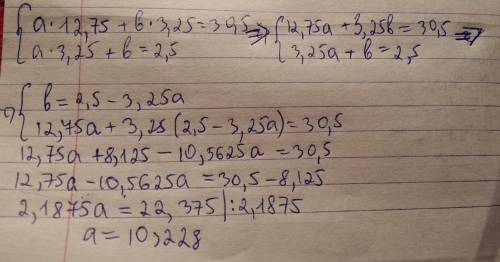 { a · 12,75 + b · 3,25 = 30,5 => { 12,75a + 3,25b = 30,5 =>
{ a · 3,25 + b = 2,5 { 3,25a + b = 2,5
=> { b = 2,5 - 3,25a
{ 12,75a + 3,25(2,5 - 3,25a) = 30,5
12,75a + 8,125 - 10,5625a = 30,5
12,75a - 10,5625a = 30,5 - 8,125
2,1875a = 22,375 | : 2,1875
a = 10,228